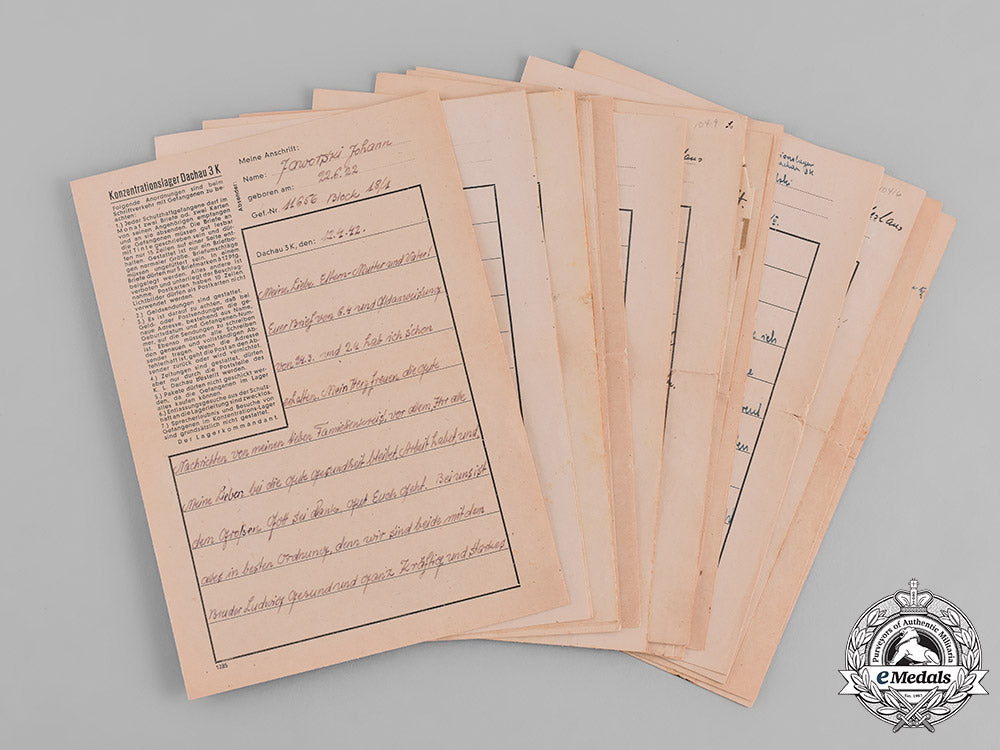 Konzentrationslager Dachau 3 K
Folgende Anordnungen sind beim
Schriftverkehr mit Gefangenen zu be-
achten:
1.) Jeder Schutzhaftgefangene darf im
Monat zwei Briefe od. zwei Karten
von seinen Angehörigen empfangen
und an sie absenden. Die Briefe an
die Gefangenen müssen gut lesbar
mit Tinte geschrieben sein und dür-
fen nur 15 Zeilen auf einer Seite ent-
halten. Gestattet ist nur ein Briefbo-
gen normaler Größe. Briefumschläge
müssen ungefüttert sein. In einem
Briefe dürfen nur 5 Briefmarken à 12 Pfg.
beigelegt werden. Alles andere ist
verboten und unterliegt der Beschlag-
nahme. Postkarten haben 10 Zeilen.
Lichtbilder dürfen als Postkarten nicht
verwendet werden.
2.) Geldsendungen sind gestattet.
3.) Es ist darauf zu achten, daß bei
Geld- oder Postsendungen die ge-
naue Adresse, bestehend aus Name,
Geburtsdatum und Gefangenen-Num-
mer, auf die Sendungen zu schreiben
ist. Ebenso müssen alle Schreiben
den genauen und vollständigen Ab-
sender tragen. Wenn die Adresse
fehlerhaft ist, geht die Post an den Ab-
sender zurück oder wird vernichtet.
4.) Zeitungen sind gestattet, dürfen
aber nur durch die Poststelle des
K. L. Dachau bestellt werden.
5.) Pakete dürfen nicht geschickt wer-
den, da die Gefangenen im Lager
alles kaufen können.
6.) Entlassungsgesuche aus der Schutz-
haft an die Lagerleitung sind zwecklos.
7.) Sprecherlaubnis und Besuche von
Gefangenen im Konzentrations-Lager
sind grundsätzlich nicht gestattet.
Der Lagerkommandant.
Absender:
Meine Anschrift:
Name: Jaworski Johann
geboren am: 22.6.22
Gef.-Nr. 11656 Block 18/1
Dachau 3 K, den: 12.4.42.
Meine Liebe Eltern - Mutter und Vater!
Euer Brief von 6.4 und Geldanweisung
von 24.3. und 2/4 hab ich schon
erhalten. Mein Herz freuen die gute
Nachrichten von meinen lieben Familienkreis, vor allem, Ihr alle
Meine Lieber bei die gute gesundheit bleibet, Arbeit habet und,
dem Großen Gott sei Dank, gut Euch geht. Bei uns ist
alles in besten Ordnung, denn wir sind beide mit dem
Bruder Ludwig Gesund und ganz Kräftig und starkes
1285
Purveyors of Authentic Militaria
eMedals